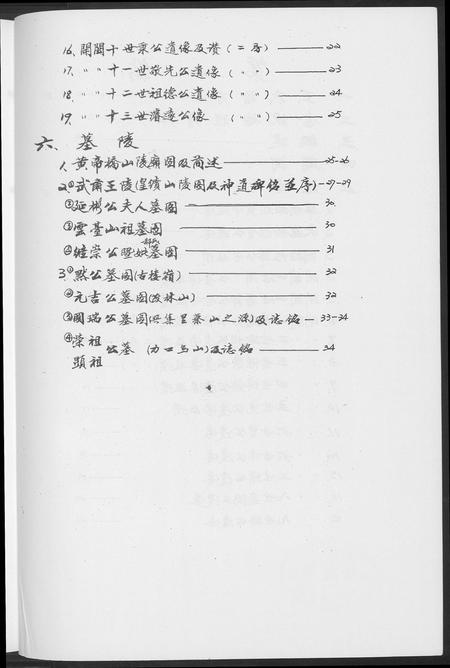 16、開閩十世秉公遺像及讚（二房）——22
17、〃〃十一世敬先公遺像（〃〃）——23
18、〃〃十二世祖德公遺像（〃〃）——24
19、〃〃十三世濬邊公像（〃〃）——25
六、墓陵
1、黄帝橋山陵廟圖及简述——25-26
2、①武肅王陵(皇績山陵圖及神道碑銘並序)—27-29
②延彬公夫人墓圖——30
③雲臺山祖墓圖——30
④繼崇公 墓圖——31
3、①點公墓圖(古樓嶺)——32
②元吉公墓圖( 林山)——32
③國瑞公墓圖( 山之源)及誌銘—33-34
④榮祖
顯祖 公墓( 山)及誌銘——34